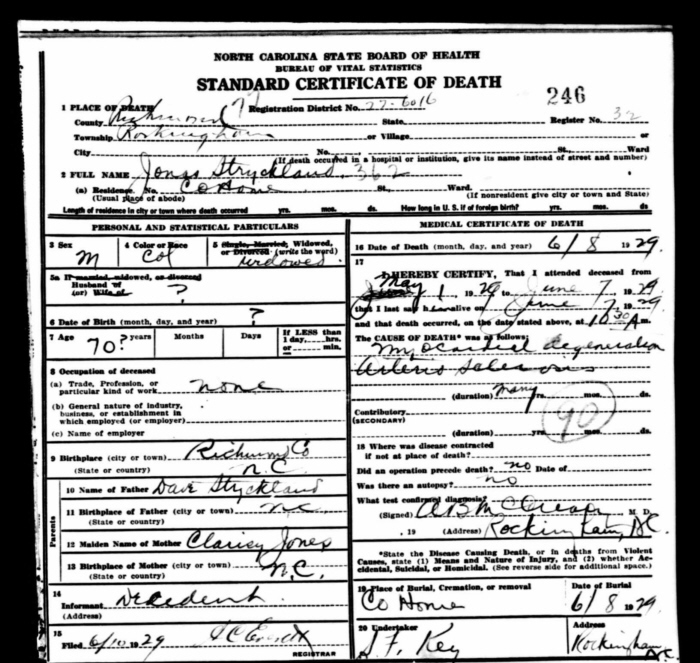 NORTH CAROLINA STATE BOARD OF HEALTH
BUREAU OF VITAL STATISTICS
STANDARD CERTIFICATE OF DEATH
246
1 PLACE OF DEATH
Registration District No. 77-6016
County Richmond State Register No. 32
Township Rockingham or Village or
City No. St. Ward
(If death occurred in a hospital or institution, give its name instead of street and number)
2 FULL NAME Jonas Stryckland 362
(a) Residence No. Co Home St. Ward.
(Usual place of abode) (If nonresident give city or town and State)
Length of residence in city or town where death occurred yrs. mos. ds. How long in U. S. if of foreign birth? yrs. mos. ds.
PERSONAL AND STATISTICAL PARTICULARS
3 Sex M
4 Color or Race Col
5 Single, Married, Widowed, or Divorced (write the word) widowed
5a If married, widowed, or divorced
Husband of
(or) Wife of ?
6 Date of Birth (month, day, and year) ?
7 Age 70? years Months Days If LESS than 1 day, hrs. or min.
8 Occupation of deceased
(a) Trade, Profession, or particular kind of work none
(b) General nature of industry, business, or establishment in which employed (or employer)
(c) Name of employer
9 Birthplace (city or town) Richmond Co
(State or country) N.C.
Parents
10 Name of Father Dave Stryckland
11 Birthplace of Father (city or town) NC
(State or country)
12 Maiden Name of Mother Claricy Jones
13 Birthplace of Mother (city or town)
(State or country) N.C.
14
Informant Decedent
(Address)
15
Filed 6/10 1929
REGISTRAR
MEDICAL CERTIFICATE OF DEATH
16 Date of Death (month, day, and year) 6/8 1929
17
I HEREBY CERTIFY, That I attended deceased from
May 1, 1929 to June 7, 1929
that I last saw h alive on June 7, 1929
and that death occurred, on the date stated above, at 10 30 A m.
The CAUSE OF DEATH* was as follows:
Myocardial degeneration
Arterio Sclerosis
(duration) many yrs. mos. ds.
Contributory
(SECONDARY)
90
(duration) yrs. mos. ds.
18 Where was disease contracted
if not at place of death?
Did an operation precede death? no Date of
Was there an autopsy? no
What test confirmed diagnosis?
(Signed) M. D.
, 19 (Address) Rockingham, N.C.
*State the Disease Causing Death, or in deaths from Violent Causes, state (1) Means and Nature of Injury, and (2) whether Accidental, Suicidal, or Homicidal. (See reverse side for additional space.)
19 Place of Burial, Cremation, or removal Date of Burial
Co Home 6/8 1929
20 Undertaker Address
S.F. Key Rockingham N.C.